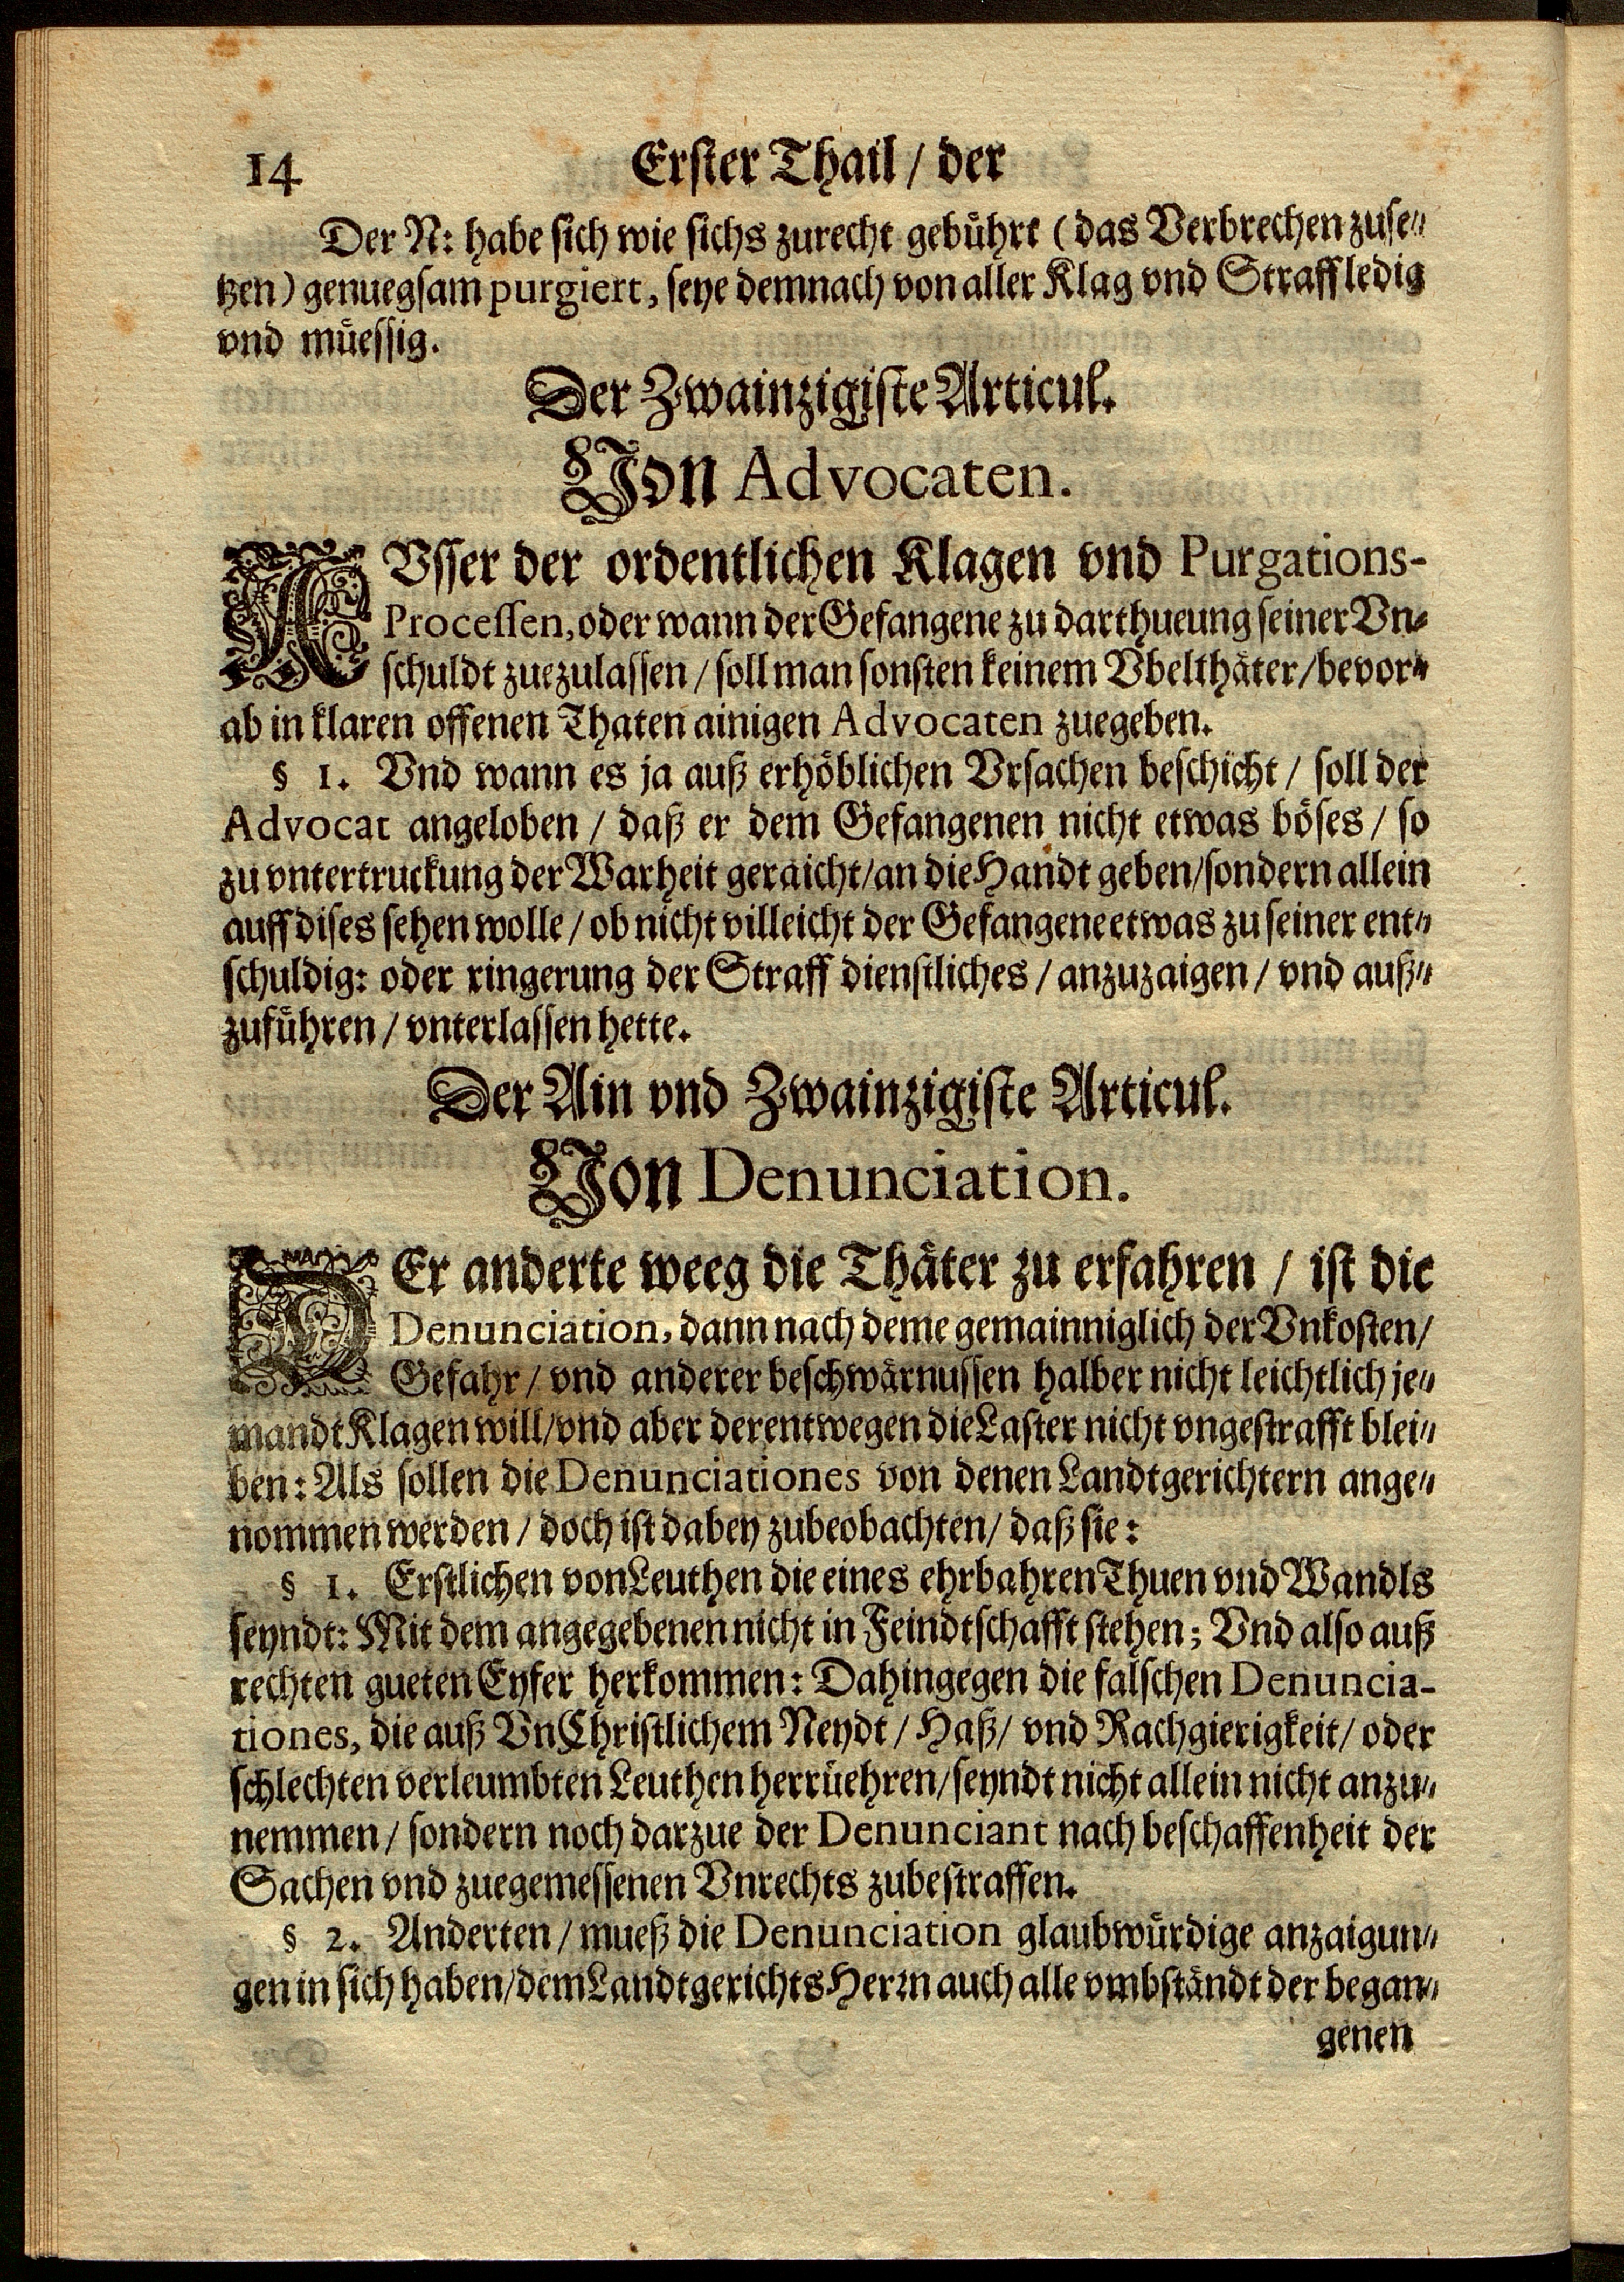 14 Erster Thail / der
Der N: habe sich wie sichs zurecht gebührt (das Verbrechen zuse⸗
tzen) genuegsam purgiert, seye demnach von aller Klag vnd Straff ledig
vnd müessig.
Der Zwainzigiste Articul.
Von Advocaten.
AVsser der ordentlichen Klagen vnd Purgations-
Processen, oder wann der Gefangene zu darthueung seiner Vn⸗
schuldt zuezulassen / soll man sonsten keinem Vbelthäter / bevor⸗
ab in klaren offenen Thaten ainigen Advocaten zuegeben.
§ 1. Vnd wann es ja auß erhöblichen Vrsachen beschicht / soll der
Advocat angeloben / daß er dem Gefangenen nicht etwas böses / so
zu vntertruckung der Warheit geraicht / an die Handt geben / sondern allein
auff dises sehen wolle / ob nicht villeicht der Gefangene etwas zu seiner ent⸗
schuldig: oder ringerung der Straff dienstliches / anzuzaigen / vnd auß⸗
zuführen / vnterlassen hette.
Der Ain vnd Zwainzigiste Articul.
Von Denunciation.
DEr anderte weeg die Thäter zu erfahren / ist die
Denunciation, dann nach deme gemainniglich der Vnkosten /
Gefahr / vnd anderer beschwärnussen halber nicht leichtlich je⸗
mandt Klagen will / vnd aber derentwegen die Laster nicht vngestrafft blei⸗
ben: Als sollen die Denunciationes von denen Landtgerichtern ange⸗
nommen werden / doch ist dabey zubeobachten / daß sie:
§ 1. Erstlichen von Leuthen die eines ehrbahren Thuen vnd Wandls
seyndt: Mit dem angegebenen nicht in Feindtschafft stehen; Vnd also auß
rechten gueten Eyfer herkommen: Dahingegen die falschen Denuncia-
tiones, die auß VnChristlichem Neydt / Haß / vnd Rachgierigkeit / oder
schlechten verleumbten Leuthen herrüehren / seyndt nicht allein nicht anzu⸗
nemmen / sondern noch darzue der Denunciant nach beschaffenheit der
Sachen vnd zuegemessenen Vnrechts zubestraffen.
§ 2. Anderten / mueß die Denunciation glaubwürdige anzaigun⸗
gen in sich haben / dem Landtgerichts Herrn auch alle vmbständt der began⸗
genen